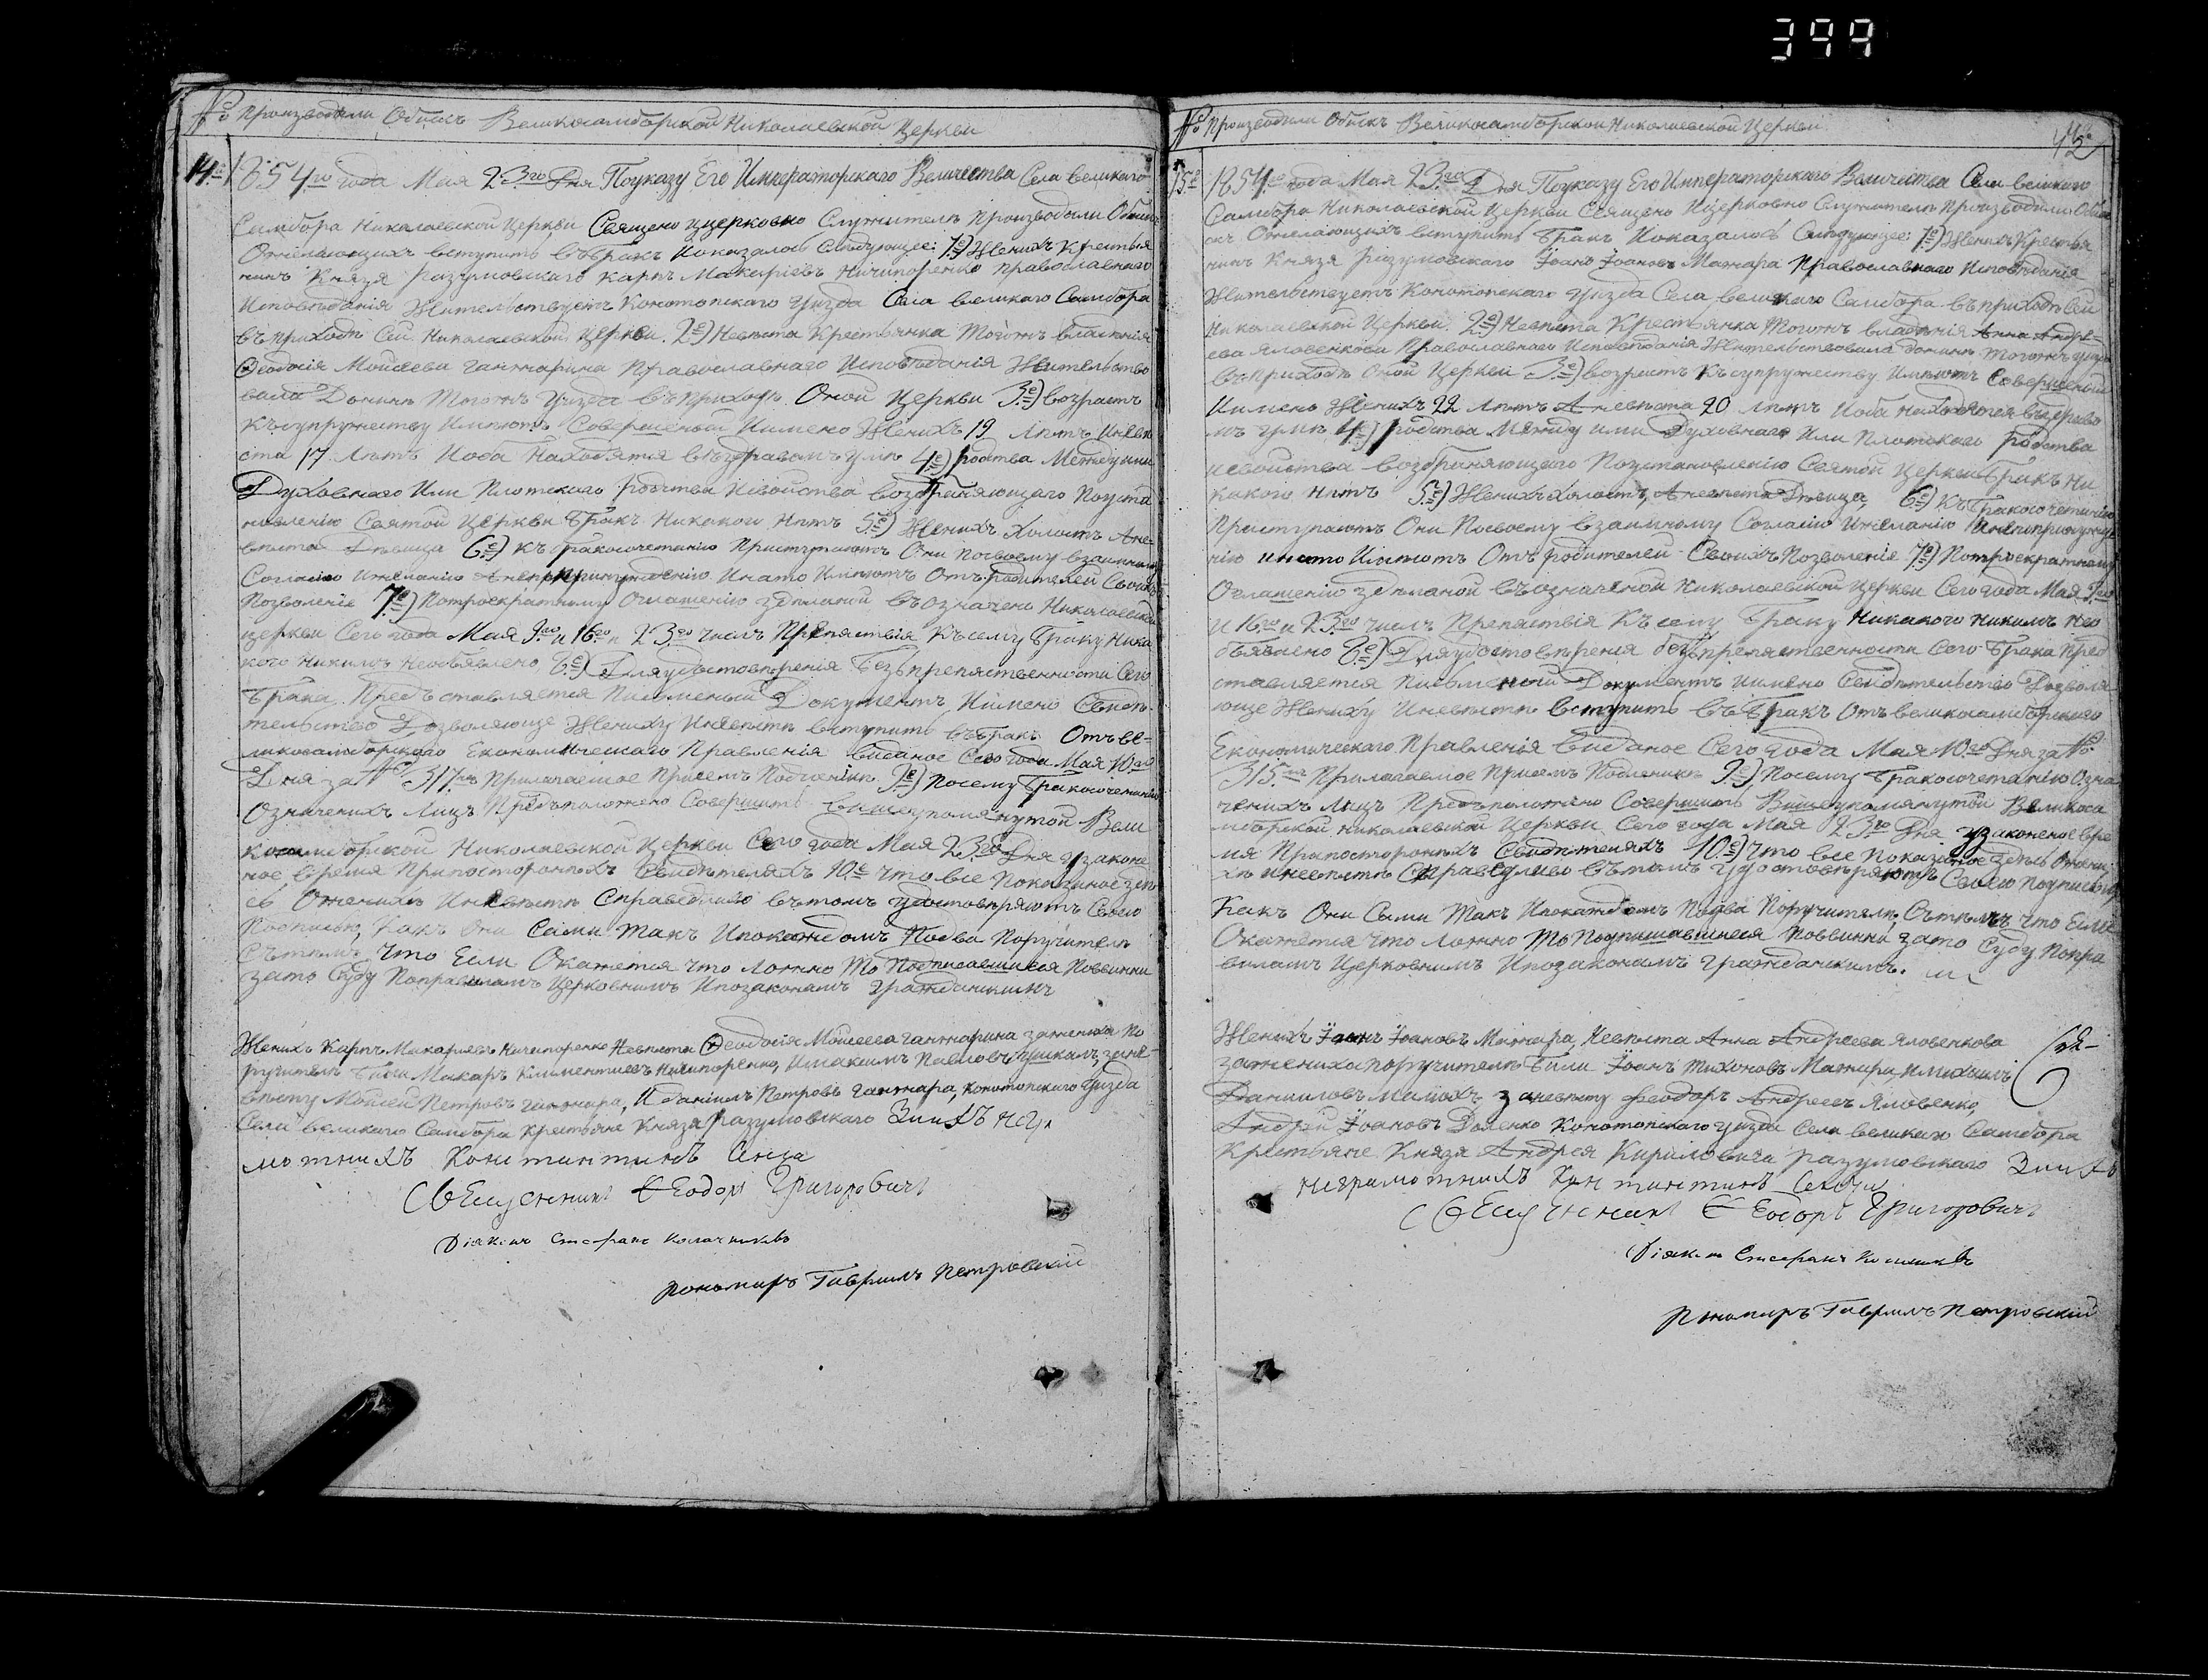 399
№ Производили Обискъ Великосамборской Николаевской Церкви
14е 1854го года Мая 23го Дня Поуказу Его Императорскаго Величества Села великого
Самбора Николаевской Церкви Священо ицерковно Служители Производили Обискъ
Ожелающихъ вступить въ бракъ Иоказалось Следующее: 1е) Женихъ Крестья
нинъ Князя разумовскаго карпъ Макариевъ Ничипоренко православнаго
Исповѣданія Жительствуетъ Конотопскаго Уизда Села великого Самбора
въприходѣ Сей Николаевской Церкви. 2е) Невѣста Крестьянка Тогожъ владѣнія
Феодосія Мойсеева ганжарина Православнаго Исповѣданія Жительство
вала Донинѣ Тогожъ Уизда въПриходѣ Оной Церкви 3е) возрастъ
Ксупружеству Имѣютъ Совершеный Иимено Женихъ 19 Лѣтъ Иневѣ
ста 17 Лѣтъ Иоба Находятся въздравомъ умѣ 4е) родства Между ими
Духовнаго Или Плотскаго родства Исвойства возбраняющаго Поуста
новленію Святой Церкви бракъ Никакого Нѣтъ 5е) Женихъ Холостъ Ане-
вѣста Дѣвица 6е) Къ бракосочетанію Приступаютъ Они Посвоему взаимному
Согласію Ижеланію Анепопринужденію Инато Имѣютъ Отъ родителей Своихъ
Позволеніе 7е) Потроекратному Оглашенію здѣланой въозначено Николаевской
церкви Сего года Мая 9го и 16го и 23го числъ Препяствія Късему браку Ника
кого Никимъ Необъявлено, 8е) Дляудостовѣренія безъпрепяственности Сего
брака Предъставляется Писменый Документъ Иимено Свидѣ-
тельство Дозволяюще Жениху Иневѣсти вступить въбракъ Отъ ве-
ликосамборскаго Економическаго Правленія виданое Сего года Мая 10го
Дня за № 317мъ Прилагаемое Присемъ Подленикъ 9е) Посему бракосочетанію
Означенихъ Лицъ Предъположено Совершить вышеупомянутой Вели
косамборской Николаевской Церкви Сего года Мая 23го Дня узаконе
ное время Припостороннихъ Свидѣтеляхъ 10е Что все Показаное здѣ
сь Оженихѣ Иневѣсти Справедливо вътомъ Удостовѣряютъ Своею
Подписью, Какъ Они Сами Такъ Ипокаждомъ Подва Поручителя
Сътимъ, Что Если Окажется что Ложно То Подписавшиеся Повинни
зато Суду Поправиламъ Церковнимъ Ипозаконамъ Гражданскимъ
Женихъ Карпъ Макариевъ Ничипоренко Невѣста Феодосія Мойсеева ганжарина зажениха По
ручители били Макаръ Климентиевъ Ничипоренко, Иякимъ Павловъ, зане-
вѣсту Мойсей Петровъ ганжара, Иданіилъ Петровъ ганжара, Конотопскаго Уизда
Села великого Самбора Крестьяне Князя разумовскаго Заихъ негра
мотнихъ Константинъ
Священникъ Феодоръ Григоровичъ
Діяконъ Стефанъ
Пономарь Гавриилъ Петровский
№ Производили Обискъ Великосамборской Николаевской Церкви
15е 1854го года Мая 23го Дня Поуказу Его Императорскаго Величества Села великого
Самбора Николаевской Церкви Священо Ицерковно Служители Производили Оби
скъ Ожелающихъ вступить бракъ Иоказалось Следующее 1е) Женихъ Крестья
нинъ Князя разумовскаго Іоанъ Іоановъ Мажара Православнаго Исповѣданія
Жительствуетъ Конотопскаго Уизда Села великого Самбора въприходѣ Сей
Николаевской Церкви. 2е) Невѣста Крестьянка Тогожъ владѣнія Анна Андре-
ева Яловенкова Православнаго Исповѣданія Жительствовала донинѣ тогожъ уизда
въПриходѣ Оной Церкви 3е) возрастъ Ксупружеству Имѣютъ Совершеный
Иимено Женихъ 22 Лѣтъ Аневѣста 20 Лѣтъ Иоба Находятся въздраво
мъ умѣ 4е) родства Между ими Духовнаго Или Плотскаго родства
исвойства возбраняющего Поустановленію Святой Церкви бракъ Ни
какого Нѣтъ 5е) Женихъ Холостъ, Аневѣста Дѣвица, 6е) Къ бракосочетанію
Приступаютъ Они Посвоему взаимному Согласію Ижеланію Инепопринужде
нію инато Имѣютъ Отъ родителей Своихъ Позволеніе 7е) Потроекратному
Оглашенію здѣланой въозначеной Николаевской Церкви Сего года Мая 9го
и 16го и 23го числъ Препяствія Късему браку Никакого Никимъ Нео
бъявлено 8е) Дляудостовѣренія безъпрепяственности Сего брака Пред
ставляется Письменой Документъ иимено Свидѣтельство Дозволя-
юще Жениху Иневѣсти вступить въбракъ Отъ великосамборскаго
Економическаго Правленія виданое Сего года Мая 10го Дня за №
315мъ Прилагаемое Присемъ Подленикъ 9е) Посему бракосочетанію Озна
ченихъ Лицъ Предъположено Совершить Вишеупомянутой Великоса
мборской николаевской Церкви Сего года Мая 23го Дня узаконеное вре
мя Припостороннихъ Свидѣтеляхъ 10е) Что все Показаное здѣсь Ожени
хѣ иневѣсти Справедливо вътомъ удостовѣряютъ Своею Подписью
Какъ Они Сами Такъ Ипокаждомъ Подва Поручителя, Сътимъ что Если
Окажется что Ложно То Подписавшиеся Повинни зато Суду Попра
виламъ Церковнимъ Ипозаконамъ Гражданскимъ.
Женихъ Іоанъ Іоановъ Мажара, Невѣста Анна Андреева Яловенкова
зажениха поручители били Іоанъ Тихоновъ Мажара, Имихаилъ
Данииловъ заневѣсту Феодоръ Андреевъ Яловенко,
Андрей Іоановъ Доценко Конотопскаго уизда Села великого Самбора
Крестьяне Князя Андрея Кириловича разумовскаго Заихъ
неграмотнихъ Константинъ
Священникъ Феодоръ Григоровичъ
Діяконъ Стефанъ
Пономарь Гавриилъ Петровский